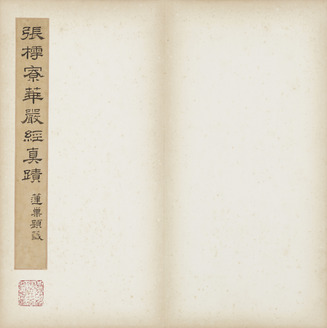 張樗寮華嚴經真蹟
蓮巢題籤